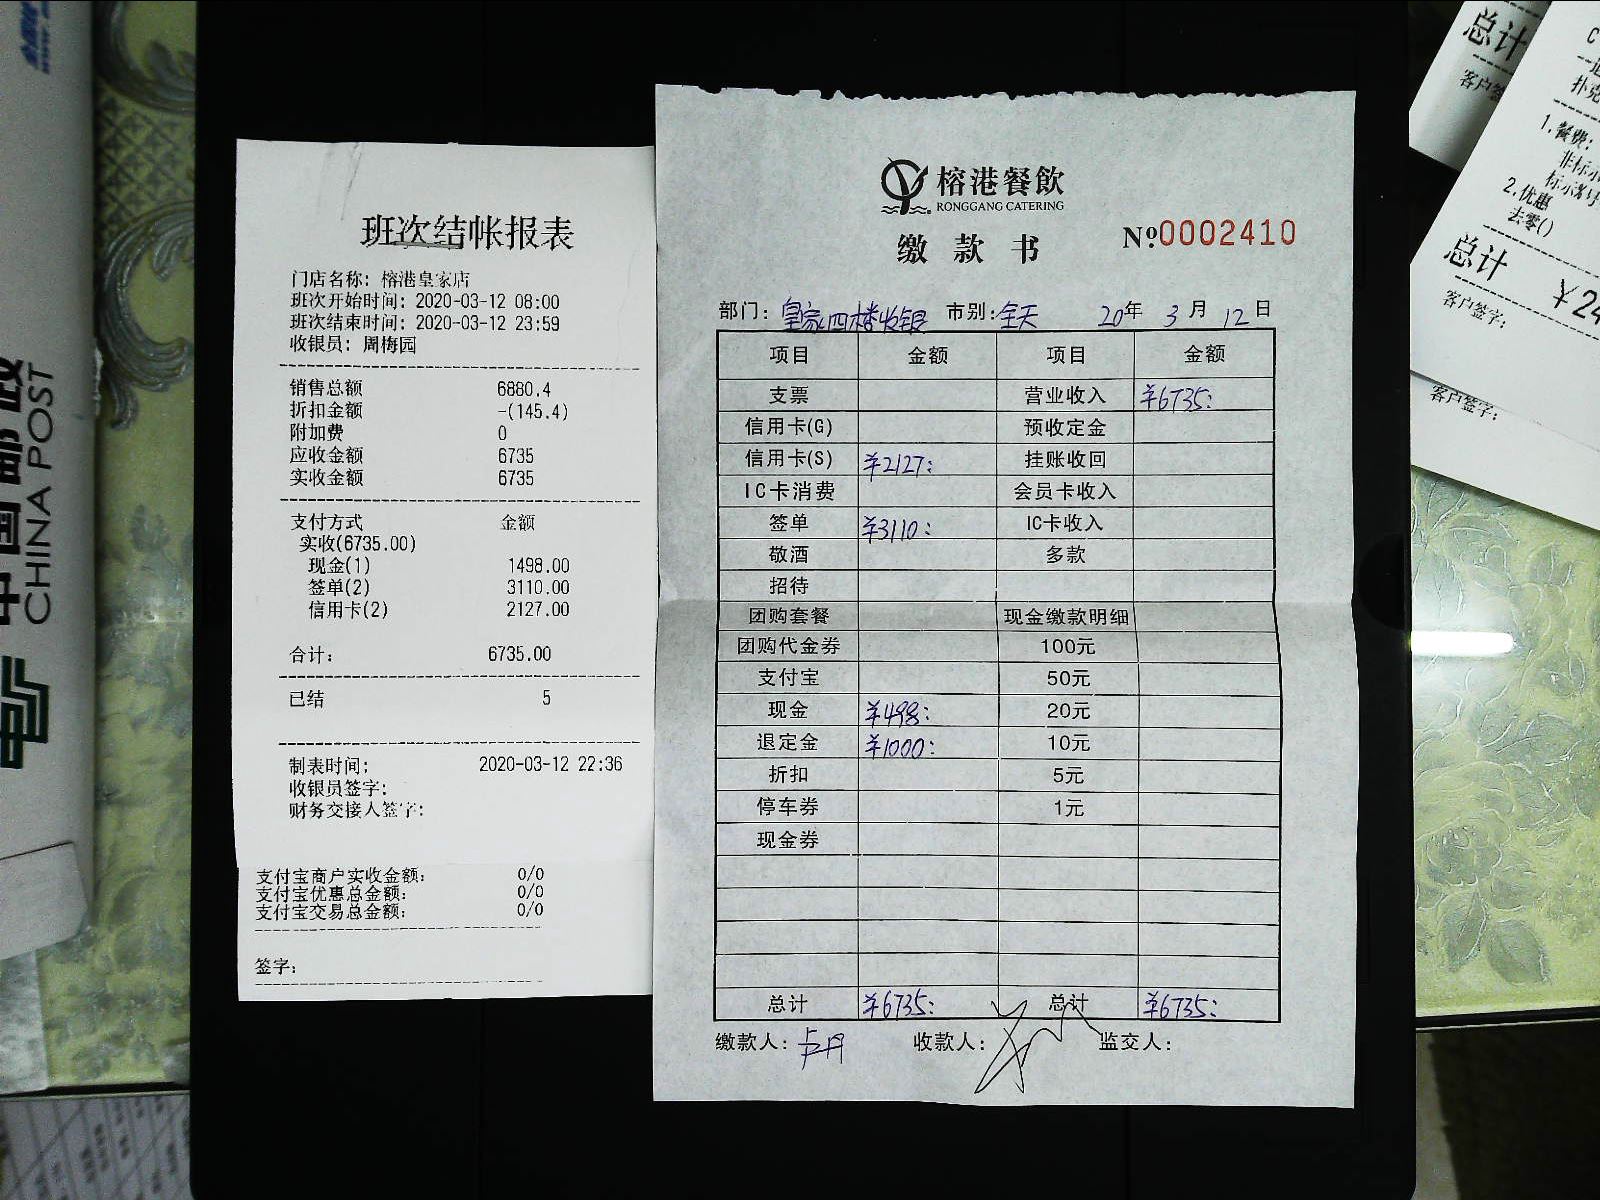 班次结帐报表
门店名称: 榕港皇家店
班次开始时间: 2020-03-12 08:00
班次结束时间: 2020-03-12 23:59
收银员: 周梅园
销售总额 6880.4
折扣金额 -(145.4)
附加费 0
应收金额 6735
实收金额 6735
支付方式 金额
实收(6735.00)
现金(1) 1498.00
签单(2) 3110.00
信用卡(2) 2127.00
合计: 6735.00
已结 5
制表时间: 2020-03-12 22:36
收银员签字:
财务交接人签字:
支付宝商户实收金额: 0/0
支付宝优惠总金额: 0/0
支付宝交易总金额: 0/0
签字:
榕港餐飲
RONGGANG CATERING
缴款书 №0002410
部门: 皇家四楼收银 市别: 全天 20年 3月 12日
项目 金额 项目 金额
支票 营业收入 ¥6735:
信用卡(G) 预收定金
信用卡(S) ¥2127: 挂账收回
IC卡消费 会员卡收入
签单 ¥3110: IC卡收入
敬酒 多款
招待
团购套餐 现金缴款明细
团购代金券 100元
支付宝 50元
现金 ¥498: 20元
退定金 ¥1000: 10元
折扣 5元
停车券 1元
现金券
总计 ¥6735: 总计 ¥6735:
缴款人: 卢丹 收款人: 监交人:
中国邮政
CHINA POST
总计
客户签
扑克
1.餐费:
非标示
标示为
2.优惠
去零()
总计 ¥24
客户签字:
客户签字: